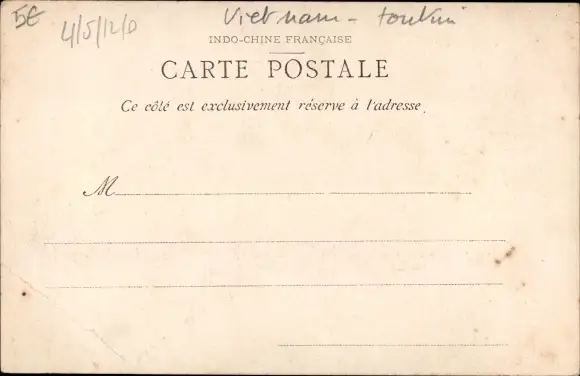 5€ 4/5/12/0 Vietnam - tonkin
INDO-CHINE FRANÇAISE
CARTE POSTALE
Ce côté est exclusivement réserve à l'adresse.
M